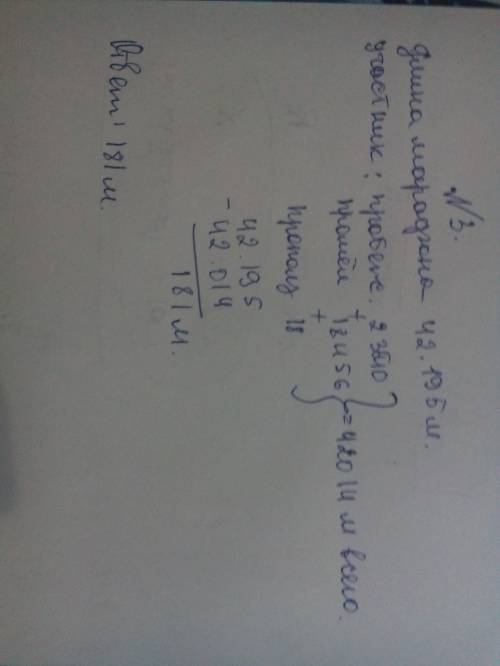 N3.
Длина марафона 42.195 м.
участник: пробеж. 23540
прошёл + 18456 } = 42014 м всего.
+
прополз 18
- 42.195
42.014
181 м.
Ответ: 181 м.